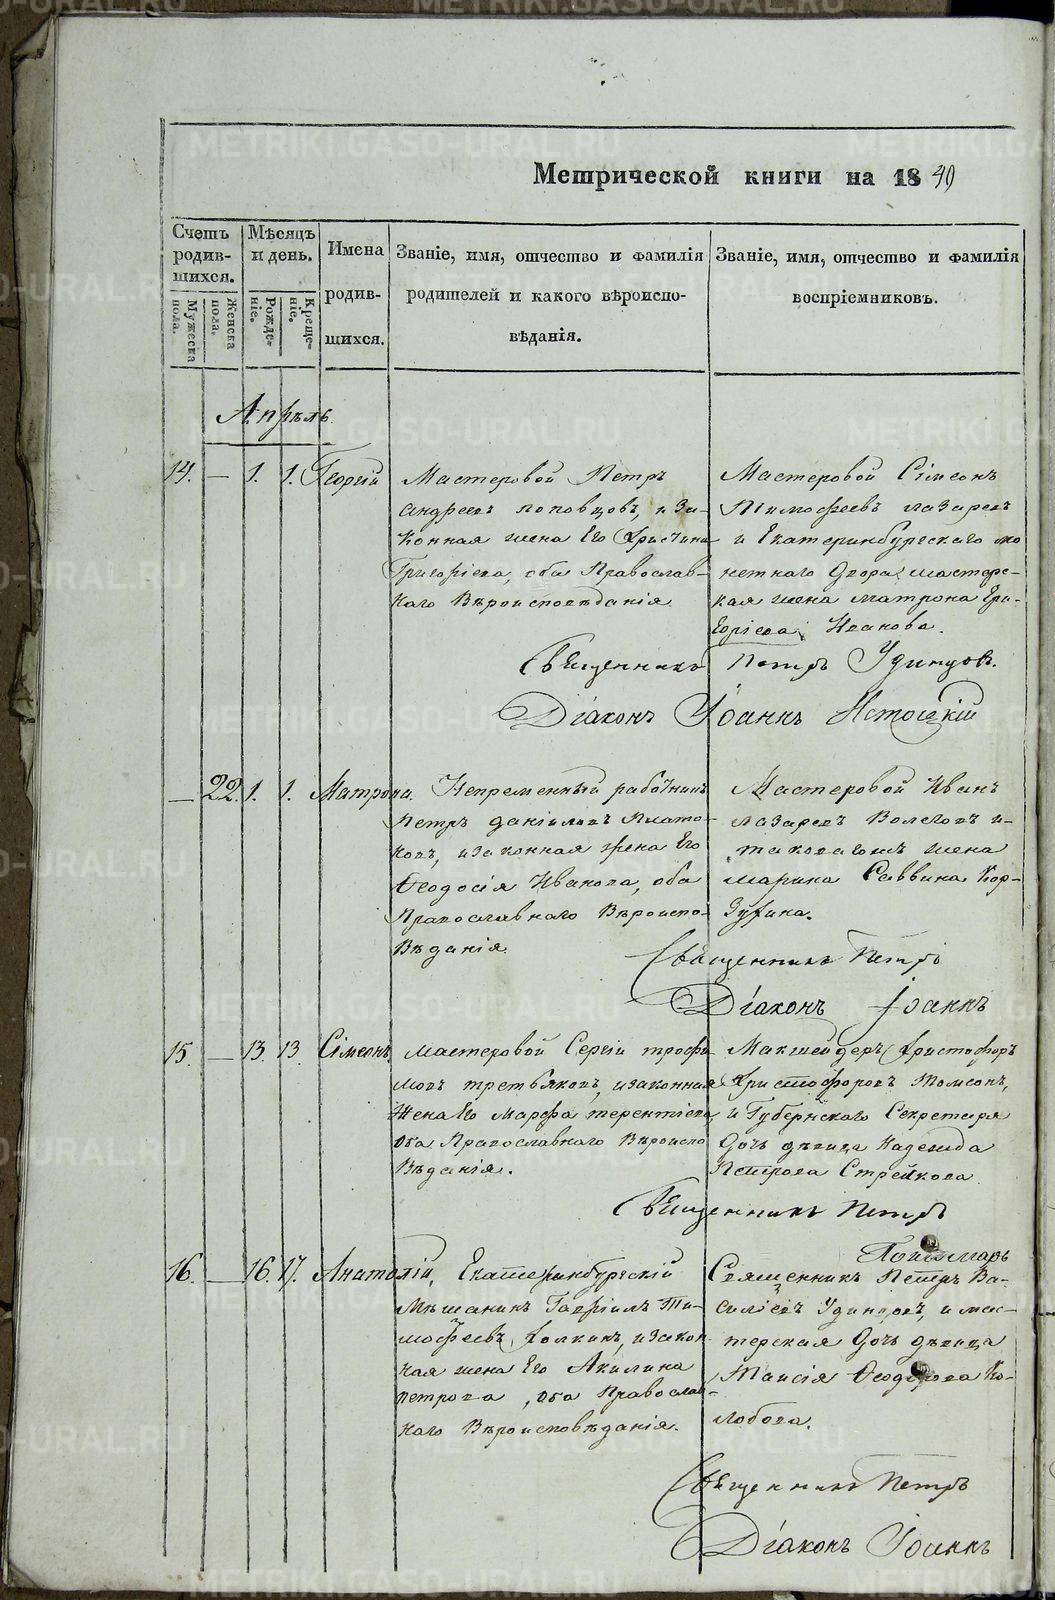 Метрической книги на 1849
Счетъ родившихся.
Мужеска пола.
Женска пола.
Мѣсяцъ и день.
Рожденіе.
Крещеніе.
Имена родившихся.
Званіе, имя, отчество и фамилія
родителей и какого вѣроиспо-
вѣданія.
Званіе, имя, отчество и фамилія
воспріемниковъ.
Апрѣль
14. — 1. 1. Георгій
Мастеровой Петръ
Андреевъ Поповцовъ, и за-
конная жена Его Христина
Григоріева, оба Православ-
наго Вѣроисповѣданія
Мастеровой Сімеонъ
Тимофеевъ Лазаревъ
и Екатеринбургскаго мо
нетнаго Двора мастерс-
кая жена Матрона Гри-
горіева Иванова.
Священникъ Петръ Удинцов.
Діаконъ Іоаннъ
— 22. 1. 1. Матрона.
Непременный работникъ
Петръ Даніиловъ Плато-
новъ, и законная жена Его
Ѳеодосія Иванова, оба
Православнаго Вѣроиспо-
вѣданія.
Мастеровой Иванъ
Лазаревъ Волеговъ и
таковагожъ жена
Марина Саввина Кор-
зухина.
Священникъ Петръ
Діаконъ Іоаннъ
15. — 13. 13 Сімеонъ
Мастеровой Сергій Трофи
мовъ Третьяковъ, и законная
жена Его Марфа Терентіева,
оба Православнаго Вѣроиспо
вѣданія.
Макшейдеръ Христофоръ
Христофоровъ Томсонъ,
и Губернскаго Секретаря
Дочь дѣвица Надежда
Петрова Стрежкова
Священникъ Петръ
Пономарь
16. — 16. 17. Анатолій,
Екатеринбургскій
Мѣщанинъ Гавріилъ Ти-
мофеевъ Холкинъ, и закон
ная жена Его Акилина
Петрова, оба Православ-
наго Вѣроисповѣданія.
Священникъ Петръ Ва-
силіевъ Удинцовъ, и мас-
терская Дочь дѣвица
Таисія Ѳеодорова Ко-
лобова.
Священникъ Петръ
Діаконъ Іоаннъ
METRIKI.GASO-URAL.RU